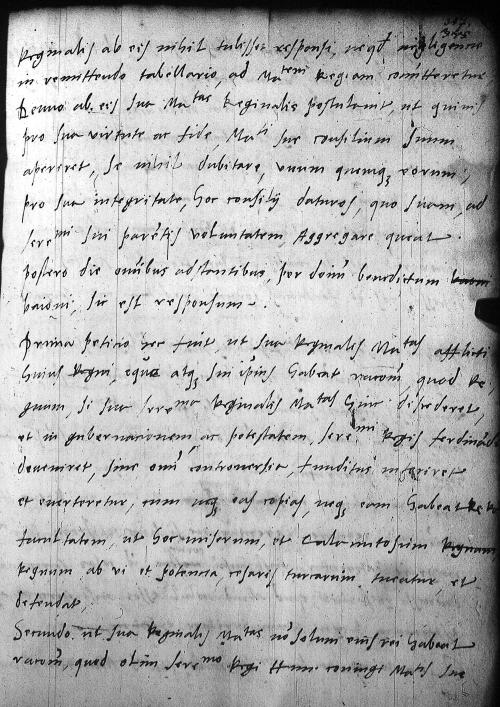 307
385
Reginalis ab eis nihil tulisset responsi, neq negligencie
in remittendo tabellario, ad Ma^tem Regiam comitteretur
Denuo ab eis sua Ma^tas Reginalis postulavit, ut quivis
pro sua virtute ac fide, Ma^ti sue consilium suum
aperiret, Se nihil dubitare, unum quemq eorum,
pro sua integritate, hoc consilij daturos, quo suam, ad
Sere^mi sui parentis voluntatem, Aggregare queat.
postero die omibus adstantibus, por domi benedictum
baioni, Sic est responsum.
Prima peticio hec fuit, ut sua Reginalis Ma^tas afflicti
huius Regni, eque atq sui ipsius habeat racom, quod Re
gnum, si sua sere^ma Reginalis Ma^tas hinc discederet,
et in gubernacionem, ac potestatem, sere^mi Regis ferdinandi
deveniret, sine omi controversia, funditus interiret
et everteretur, cum neq eas copias, neq eam habeat
facultatem, ut hoc miserum, et Calamitosum
Regnum ab vi et potencia, cesaris turcarum tueatur, et
defendat,
Secundo, ut sua Reginalis Ma^tas no solum eius rei habeat
racom, quod olim sere^mo Regi Hun: coniugi Ma^tis sue